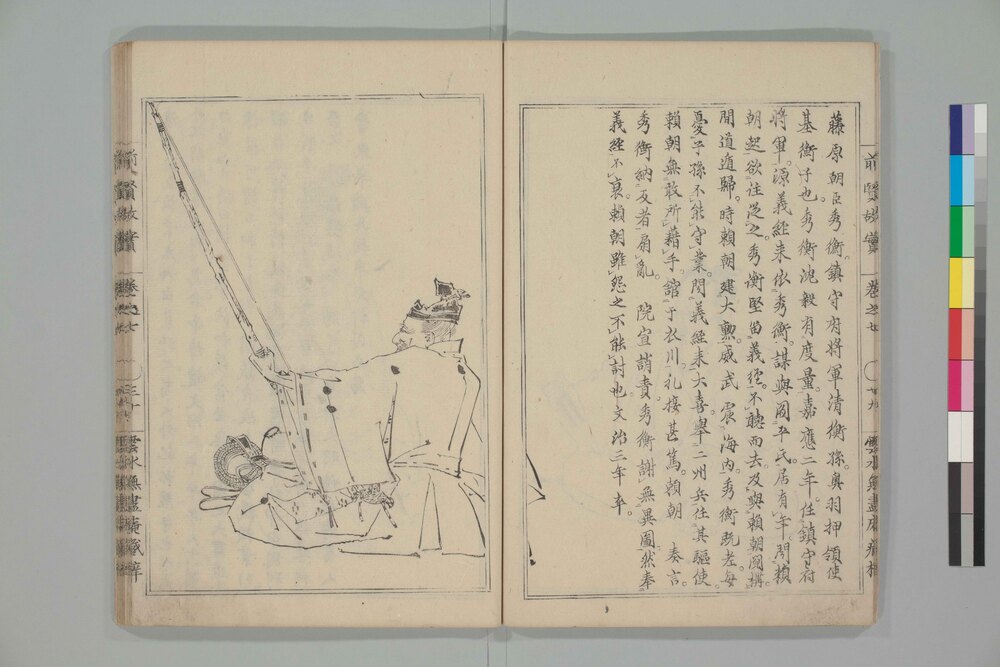 藤原朝臣秀衡。鎮守府将軍清衡孫。奥羽押領使
基衡子也。秀衡沈毅有度量。嘉應二年。任鎮守府
将軍。源義經来依秀衡。謀與圖平氏。居有年。聞頼
朝起欲往從之。秀衡堅留。義經不聽而去。及與頼朝鬩搆。
間道遁歸。時頼朝建大勲。威武震海内。秀衡既老。毎
憂子孫不能守業。聞義經来大喜。舉二州兵任其驅使。
頼朝無敢所藉手。舘于衣川。礼接甚篤。頼朝 奏言。
秀衡納反者扇亂 院宣誚責。秀衡謝無異圖。然奉
義經不衰。頼朝雖怨之不能討也。文治三年卒。
前賢故實 巻之七 廿九
前賢故實 巻之七 三十
雲水無盡庵藏梓